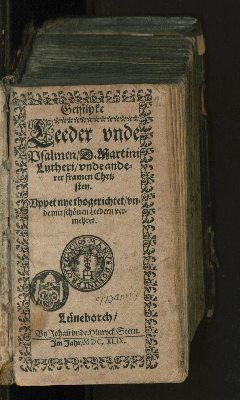 Geistlyke
Leeder vnde
Psalmen/ D. Martini
Lutheri/ vnde ande-
rer framen Chri-
sten.
Vppet nye thogerichtet/ vn-
de mit schönen Leedern vor-
mehret.
Lüneborch/
By Johan vnde Hinrick Stern.
Im Jahr/ M DC. XLIX.